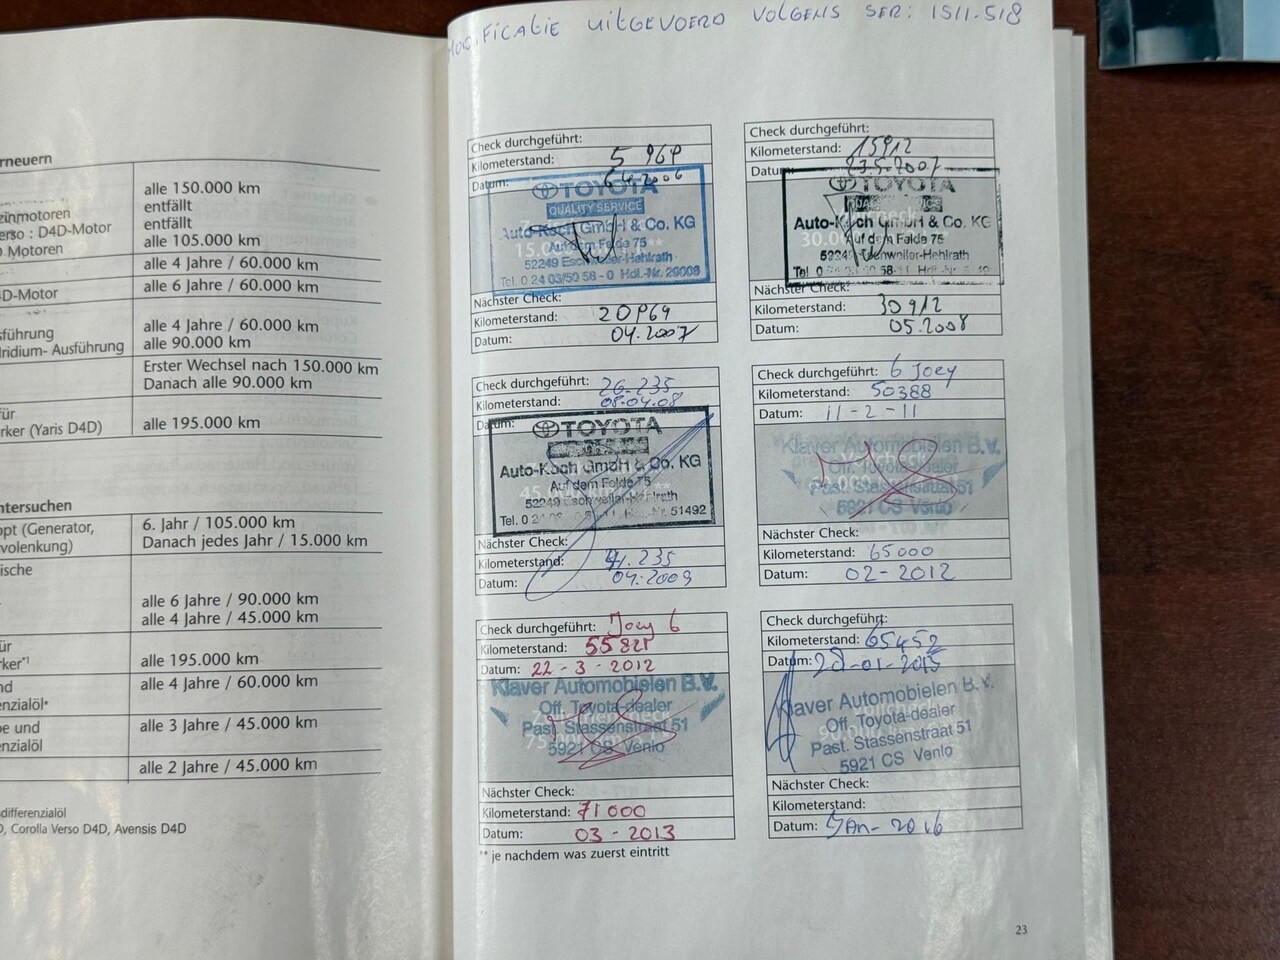 MODIFICATIE UITGEVOERD VOLGENS SER: 1S11.518
erneuern
alle 150.000 km
zinmotoren entfällt
erso : D4D-Motor entfällt
D Motoren alle 105.000 km
alle 4 Jahre / 60.000 km
4D-Motor alle 6 Jahre / 60.000 km
sführung alle 4 Jahre / 60.000 km
Iridium- Ausführung alle 90.000 km
Erster Wechsel nach 150.000 km
Danach alle 90.000 km
für
rker (Yaris D4D) alle 195.000 km
ntersuchen
ppt (Generator, 6. Jahr / 105.000 km
volenkung) Danach jedes Jahr / 15.000 km
ische
alle 6 Jahre / 90.000 km
alle 4 Jahre / 45.000 km
ür
rker*¹ alle 195.000 km
nd alle 4 Jahre / 60.000 km
enzialöl*
be und alle 3 Jahre / 45.000 km
nzialöl
alle 2 Jahre / 45.000 km
sdifferenzialöl
D, Corolla Verso D4D, Avensis D4D
Check durchgeführt:
Kilometerstand: 5 969
Datum:
TOYOTA
QUALITY SERVICE
Auto-Koch GmbH & Co. KG
Auf dem Felde 75
52249 Eschweiler-Hehlrath
Tel. 0 24 03/50 58 - 0 Hdl.-Nr. 29008
Nächster Check:
Kilometerstand: 20969
Datum: 04.2007
Check durchgeführt:
Kilometerstand: 15912
Datum: 23.5.2007
TOYOTA
Auto-Koch GmbH & Co. KG
Auf dem Felde 75
52249 Eschweiler-Hehlrath
Nächster Check:
Kilometerstand: 30912
Datum: 05.2008
Check durchgeführt: 26.235
Kilometerstand: 08.04.08
Datum:
TOYOTA
Auto-Koch GmbH & Co. KG
Auf dem Felde 75
52249 Eschweiler-Hehlrath
Nächster Check:
Kilometerstand: 41.235
Datum: 04.2009
Check durchgeführt: 6 Joey
Kilometerstand: 50388
Datum: 11-2-11
Klaver Automobielen B.V.
Off. Toyota-dealer
Past. Stassenstraat 51
5921 CS Venlo
Nächster Check:
Kilometerstand: 65000
Datum: 02-2012
Check durchgeführt: Joey 6
Kilometerstand: 55821
Datum: 22-3-2012
Klaver Automobielen B.V.
Off. Toyota-dealer
Past. Stassenstraat 51
5921 CS Venlo
Nächster Check:
Kilometerstand: 71000
Datum: 03-2013
Check durchgeführt:
Kilometerstand: 65452
Datum: 20-01-2015
Klaver Automobielen B.V.
Off. Toyota-dealer
Past. Stassenstraat 51
5921 CS Venlo
Nächster Check:
Kilometerstand:
Datum: Jan-2016
** je nachdem was zuerst eintritt
23